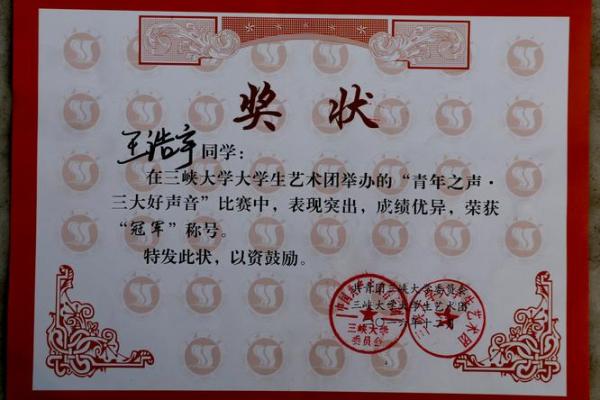 奖状
王浩宇同学：
在三峡大学大学生艺术团举办的“青年之声·
三大好声音”比赛中，表现突出，成绩优异，荣获
“冠军”称号。
特发此状，以资鼓励。
共青团三峡大学委员会
三峡大学大学生艺术团
三峡大学
委员会